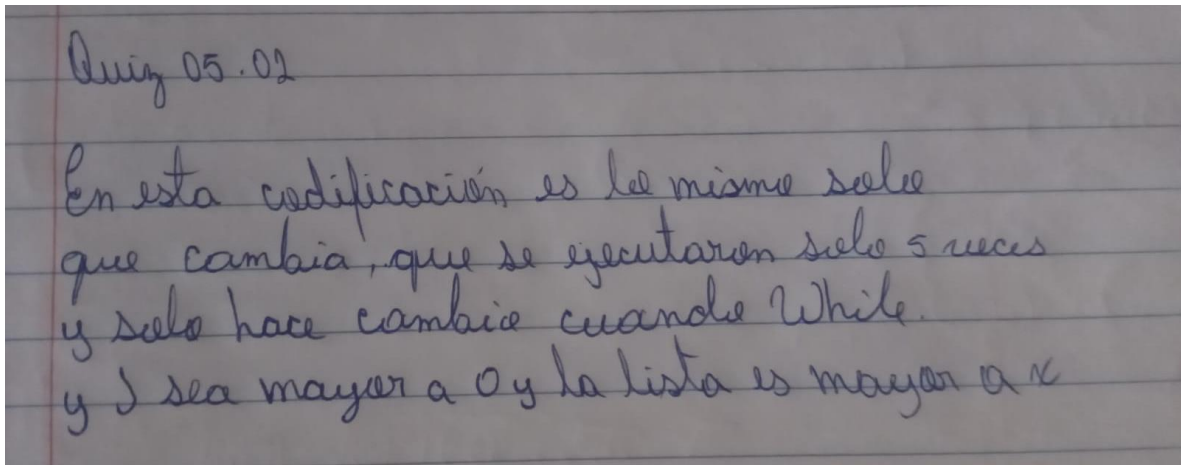 Quiz 05.02
En esta codificación es lo mismo solo
que cambia, que se ejecutaron solo 5 veces
y solo hace cambio cuando While.
y J sea mayor a 0 y la lista es mayor a x